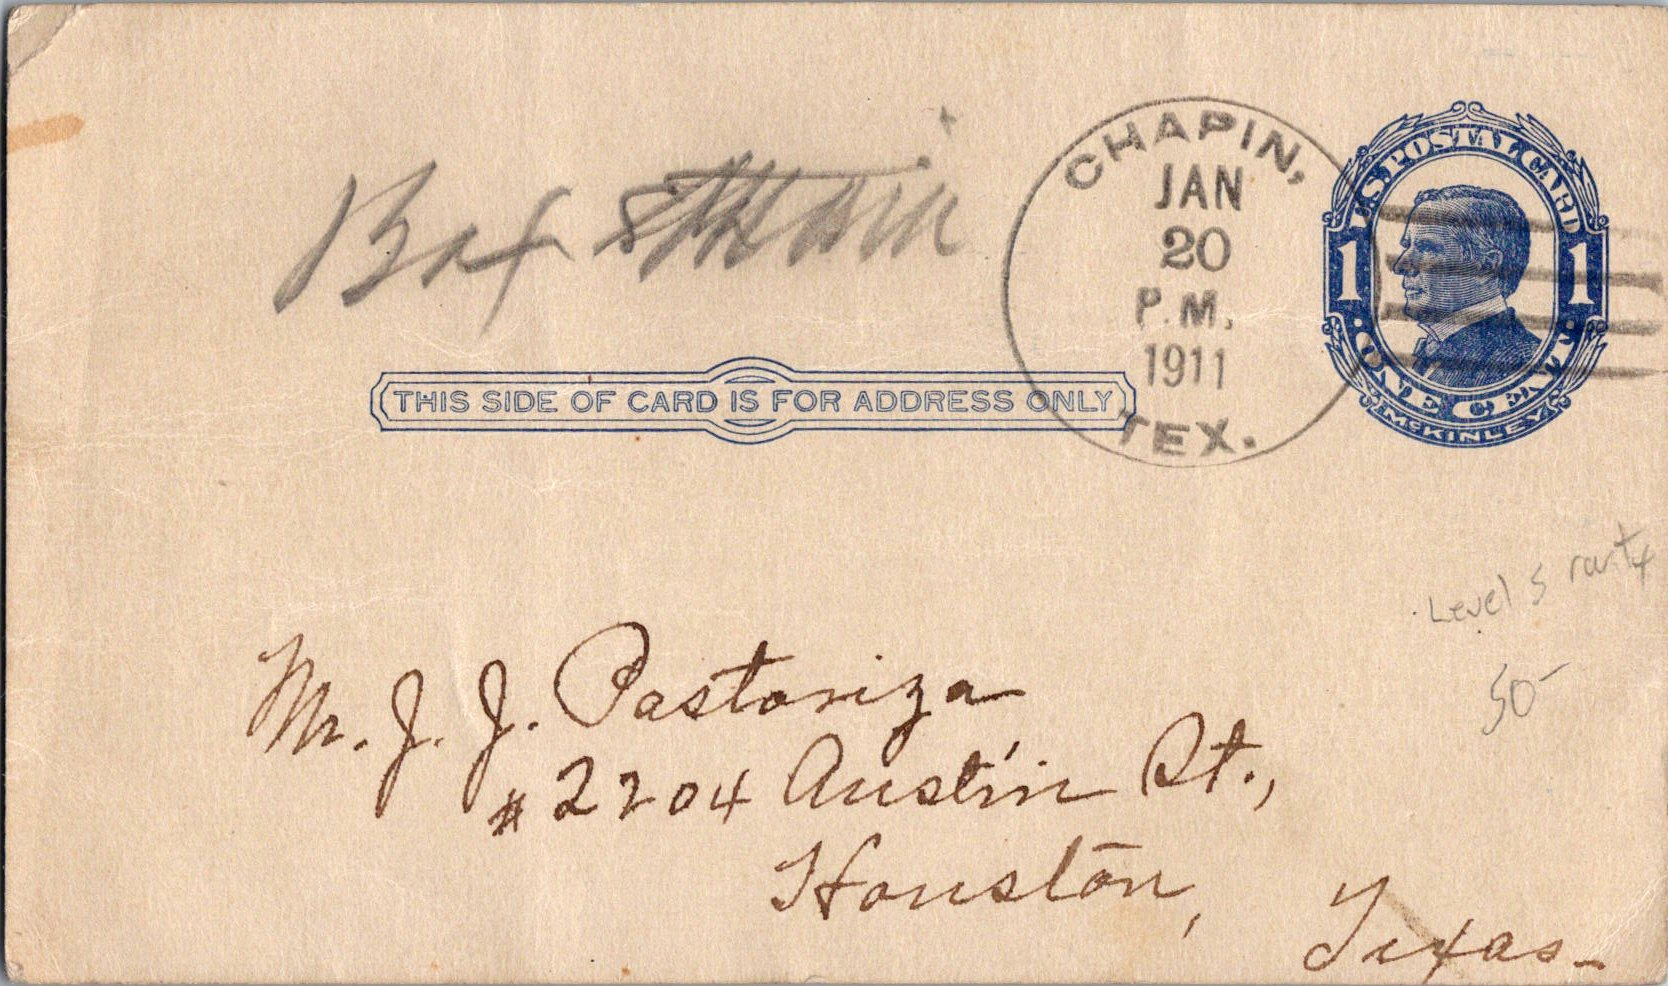 CHAPIN,
JAN
20
P.M.
1911
TEX.
U.S. POSTAL CARD
1 1
· ONE CENT ·
McKINLEY
Box
THIS SIDE OF CARD IS FOR ADDRESS ONLY
Level 5 rarity
50-
Mr. J. J. Pastoriza
# 2204 Austin St.,
Houston,
Texas-